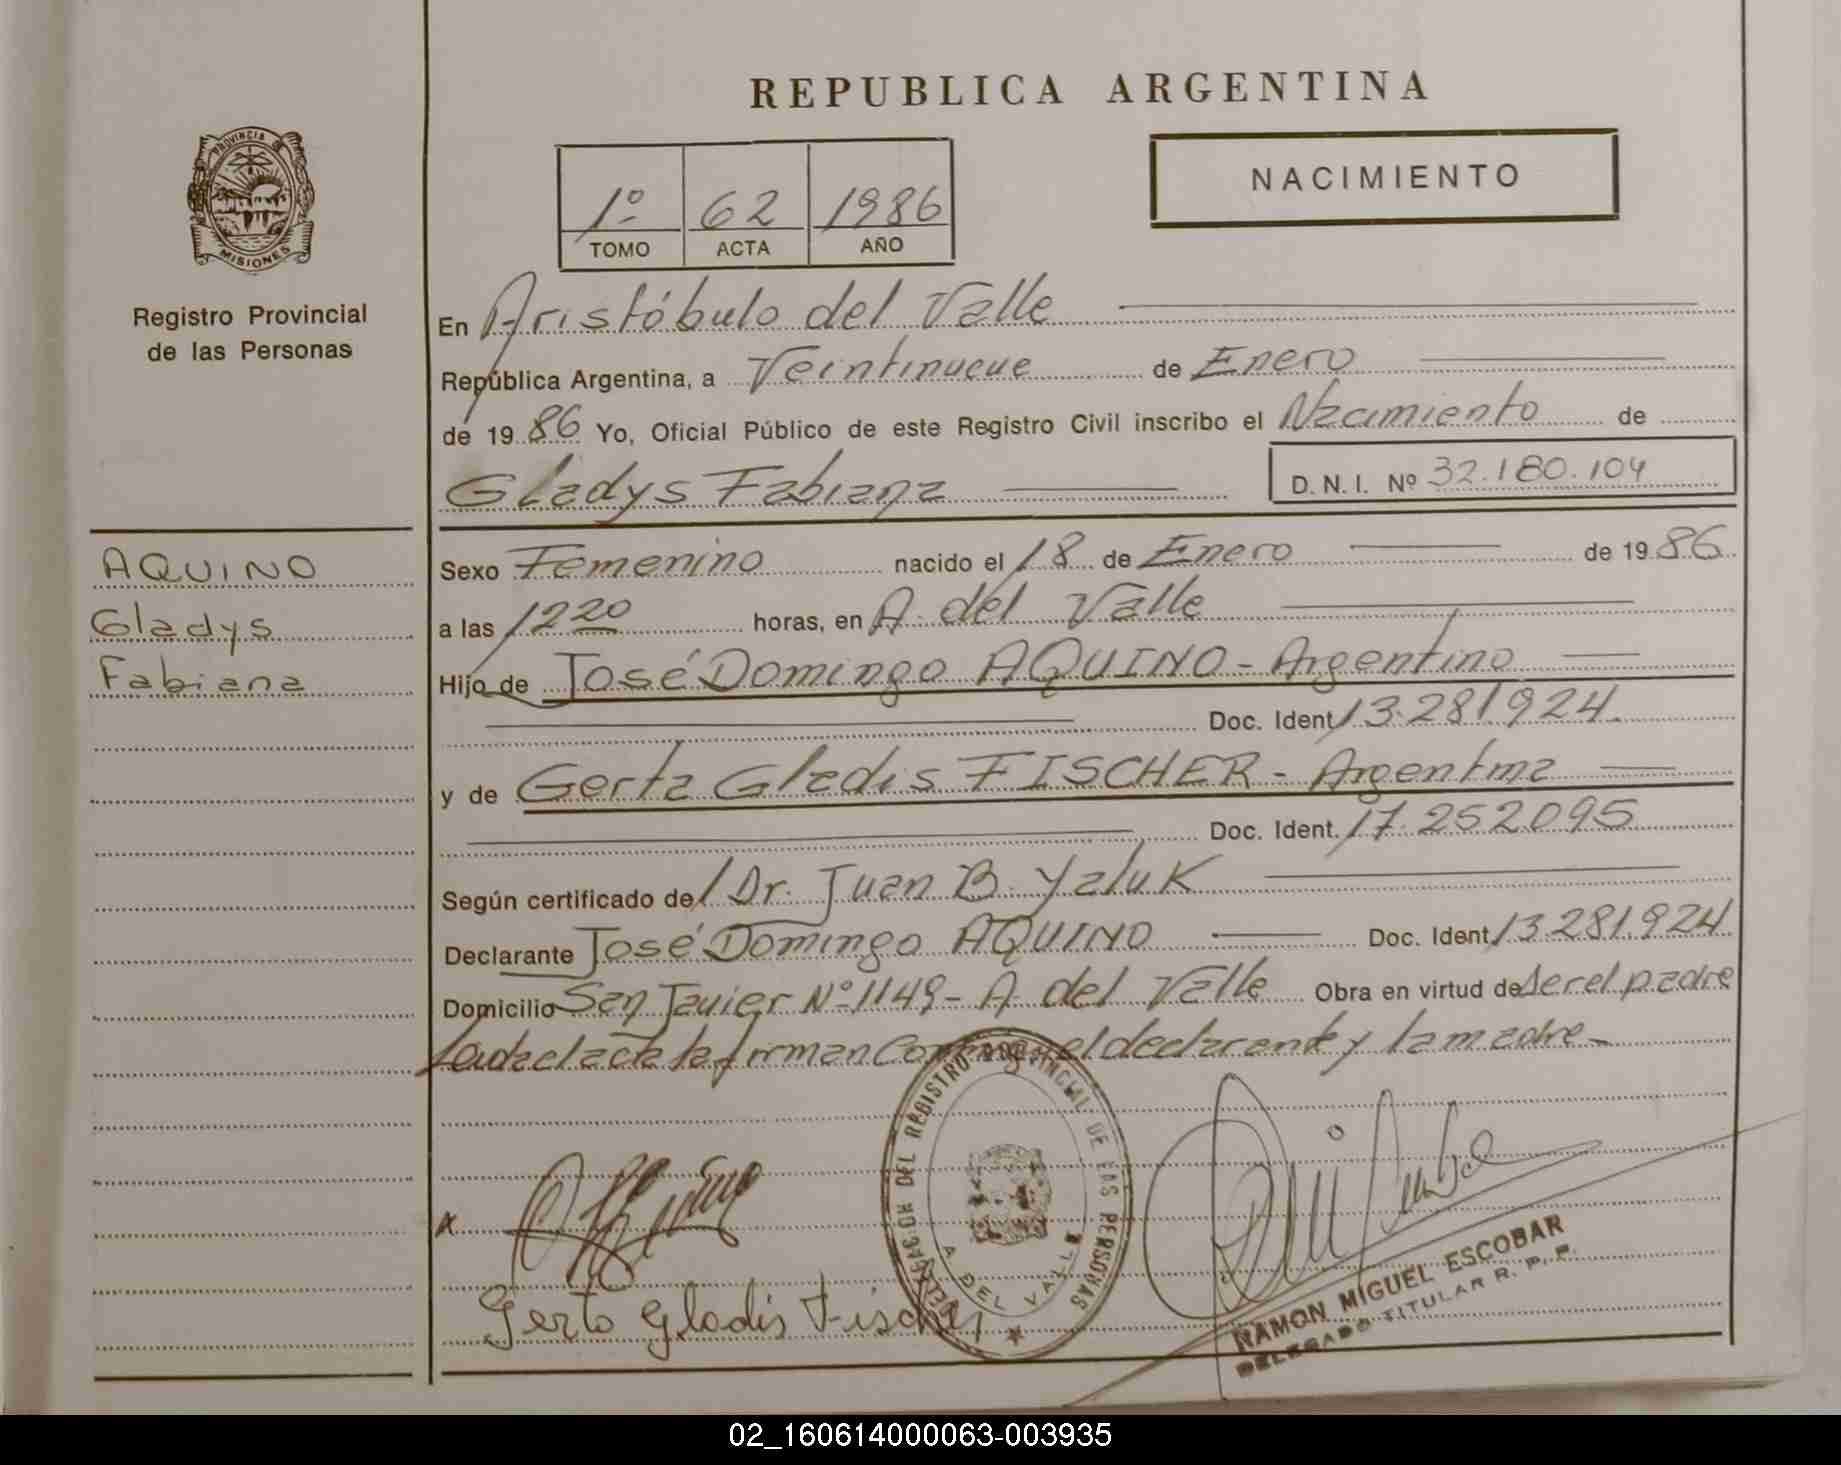 REPUBLICA ARGENTINA
NACIMIENTO
1º 62 1986
TOMO ACTA AÑO
PROVINCIA
MISIONES
Registro Provincial
de las Personas
En Aristóbulo del Valle
República Argentina, a Veintinueve de Enero
de 1986 Yo, Oficial Público de este Registro Civil inscribo el Nacimiento de
Gladys Fabiana
D. N. I. Nº 32.180.104
AQUINO
Gladys
Fabiana
Sexo Femenino nacido el 18 de Enero de 1986
a las 1220 horas, en A. del Valle
Hijo de José Domingo AQUINO - Argentino
Doc. Ident. 13.281.924
y de Gerta Gladis FISCHER - Argentina
Doc. Ident. 17.252095
Según certificado de Dr. Juan B. Yaluk
Declarante José Domingo AQUINO Doc. Ident. 13.281.924
Domicilio San Javier Nº 1149 - A del Valle Obra en virtud de ser el padre
Leída el acta la firman conmigo el declarante y la madre -
DELEGACION DEL REGISTRO PROVINCIAL DE LAS PERSONAS
A. DEL VALLE
x
Gerta Gladis Fischer
RAMON MIGUEL ESCOBAR
DELEGADO TITULAR R. P. P.
02_160614000063-003935